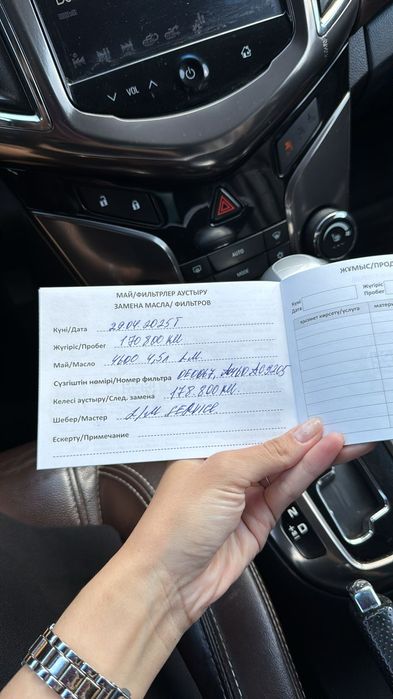 VOL
AUTO
MODE
МАЙ/ФИЛЬТРЛЕР АУСТЫРУ
ЗАМЕНА МАСЛА/ ФИЛЬТРОВ
Күні/Дата 29.04.2025г
Жүгіріс/Пробег 170 800 км
Май/Масло 4600 4,5л L.M.
Сүзгіштің нөмірі/Номер фильтра
Келесі аустыру/След. замена 178.800 км.
Шебер/Мастер L/M SERVICE
Ескерту/Примечание
ЖҰМЫС/ПРОД
Күні
Дата
Жүгіріс
Пробег
қызмет көрсету/услуга
матери
N
D